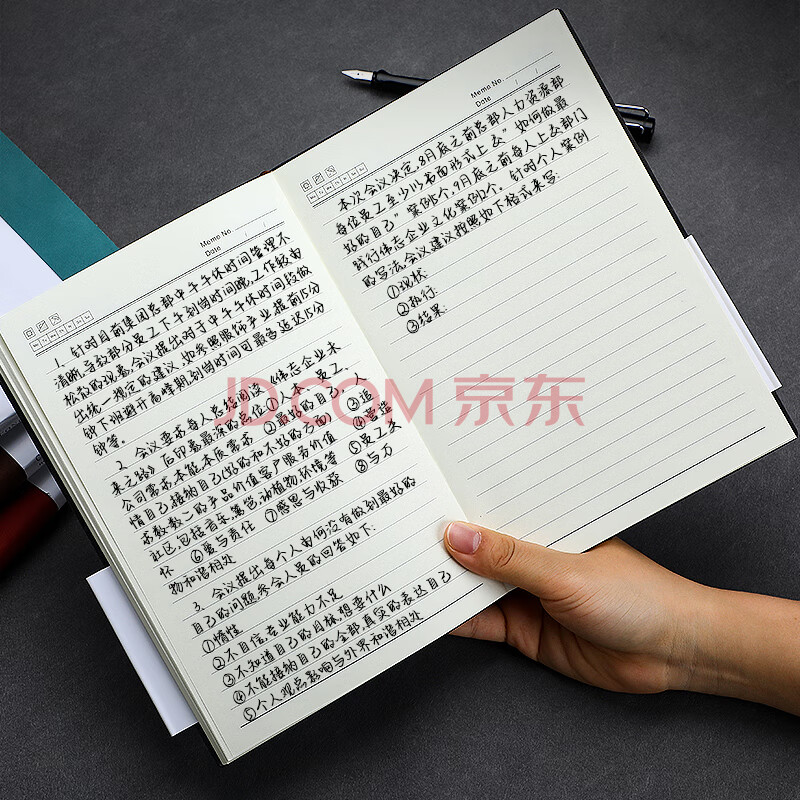 Memo No.
Date / /
1. 针对目前集团总部中午午休时间管理不
清晰,导致部分员工下午到岗时间晚,工作较为
松散的现象,会议提出对于中午午休时间段做
出统一规定的建议,如参照服饰产业,提前15分
钟下班避开高峰期,到岗时间可最多延迟15分
钟等.
2. 会议要求每人总结阅读《伟志企业未
来之路》后印象最深的岛位①人本、员工、人
公司需求,本能、本质需求 ②最好的自己 ③追
情自己接纳自己(好的和不好的方面) ④营造
求数数二的产品价值,客户服务价值 ⑤员工关
社区,包括音乐,篱笆,动植物,环境等
怀 ⑥爱与责任 ⑦感恩与收获 ⑧与万
物和谐相处
3. 会议提出每个人由何没有做到最好的
自己的问题,参会人员的回答如下:
①惰性
②不自信,专业能力不足
③不知道自己的目标,想要什么
④不能接纳自己的全部,真实的表达自己
⑤个人观点影响与外界和谐相处
Memo No.
Date / /
本次会议决定,8月底之前总部人力资源部
每位员工至少以书面形式上交"如何做最
好的自己"案例5个,9月底之前每人上交部门
践行伟志企业文化案例1个. 针对个人案例
的写法,会议建议按照如下格式来写:
①现状:
②执行:
③结果:
JD.COM 京东